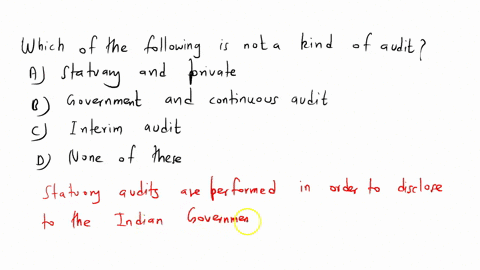 Which of the following is not a kind of audit?
A) Statuary and private
B) Government and continuous audit
C) Interim audit
D) None of these
Statuory audits are performed in order to disclose
to the Indian Governmen